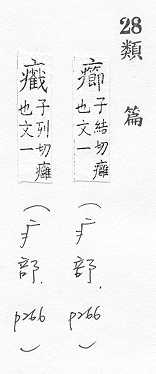 28類篇
癤子結切癰
也文一
(疒部.p266)
子列切癰
也文一
(疒部.p266)